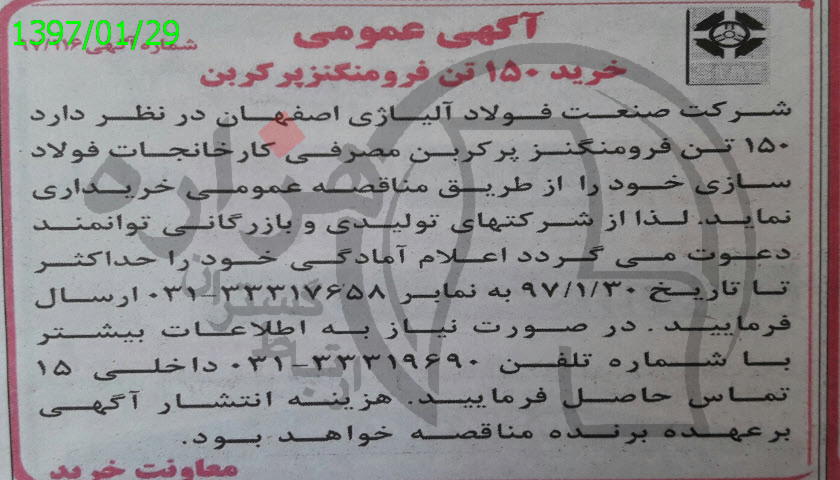 1397/01/29
آگهی عمومی
شماره آگهی ۹۷/۱۱۶
خرید ۱۵۰ تن فرومنگنزپرکربن
شرکت صنعت فولاد آلیاژی اصفهان در نظر دارد
۱۵۰ تن فرومنگنز پرکربن مصرفی کارخانجات فولاد
سازی خود را از طریق مناقصه عمومی خریداری
نماید. لذا از شرکتهای تولیدی و بازرگانی توانمند
دعوت می گردد اعلام آمادگی خود را حداکثر
تا تاریخ ۹۷/۱/۳۰ به نمابر ۳۳۳۱۷۶۵۸-۰۳۱ ارسال
فرمایید. در صورت نیاز به اطلاعات بیشتر
با شماره تلفن ۳۳۳۱۹۶۹۰-۰۳۱ داخلی ۱۵
تماس حاصل فرمایید. هزینه انتشار آگهی
برعهده برنده مناقصه خواهد بود.
معاونت خرید
هزاره